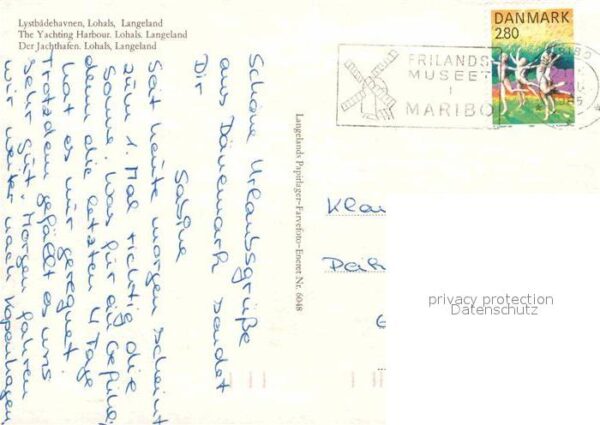 Lystbådehavnen, Lohals, Langeland
The Yachting Harbour. Lohals. Langeland
Der Jachthafen. Lohals, Langeland
DANMARK
2.80
FRILANDS
MUSEET
I
MARIBO
Langelands Papirlager-Farvefoto-Eneret Nr. 6048
Schöne Urlaubsgrüße
aus Dänemark sendet
Dir Sabine
Seit heute morgen scheint
zum 1. Mal richtig die
Sonne. Was für ein Gefühl,
denn die letzten 4 Tage
hat es nur geregnet.
Trotzdem gefällt es uns
sehr gut. Morgen fahren
wir weiter nach Kopenhagen
Klau
privacy protection
Datenschutz